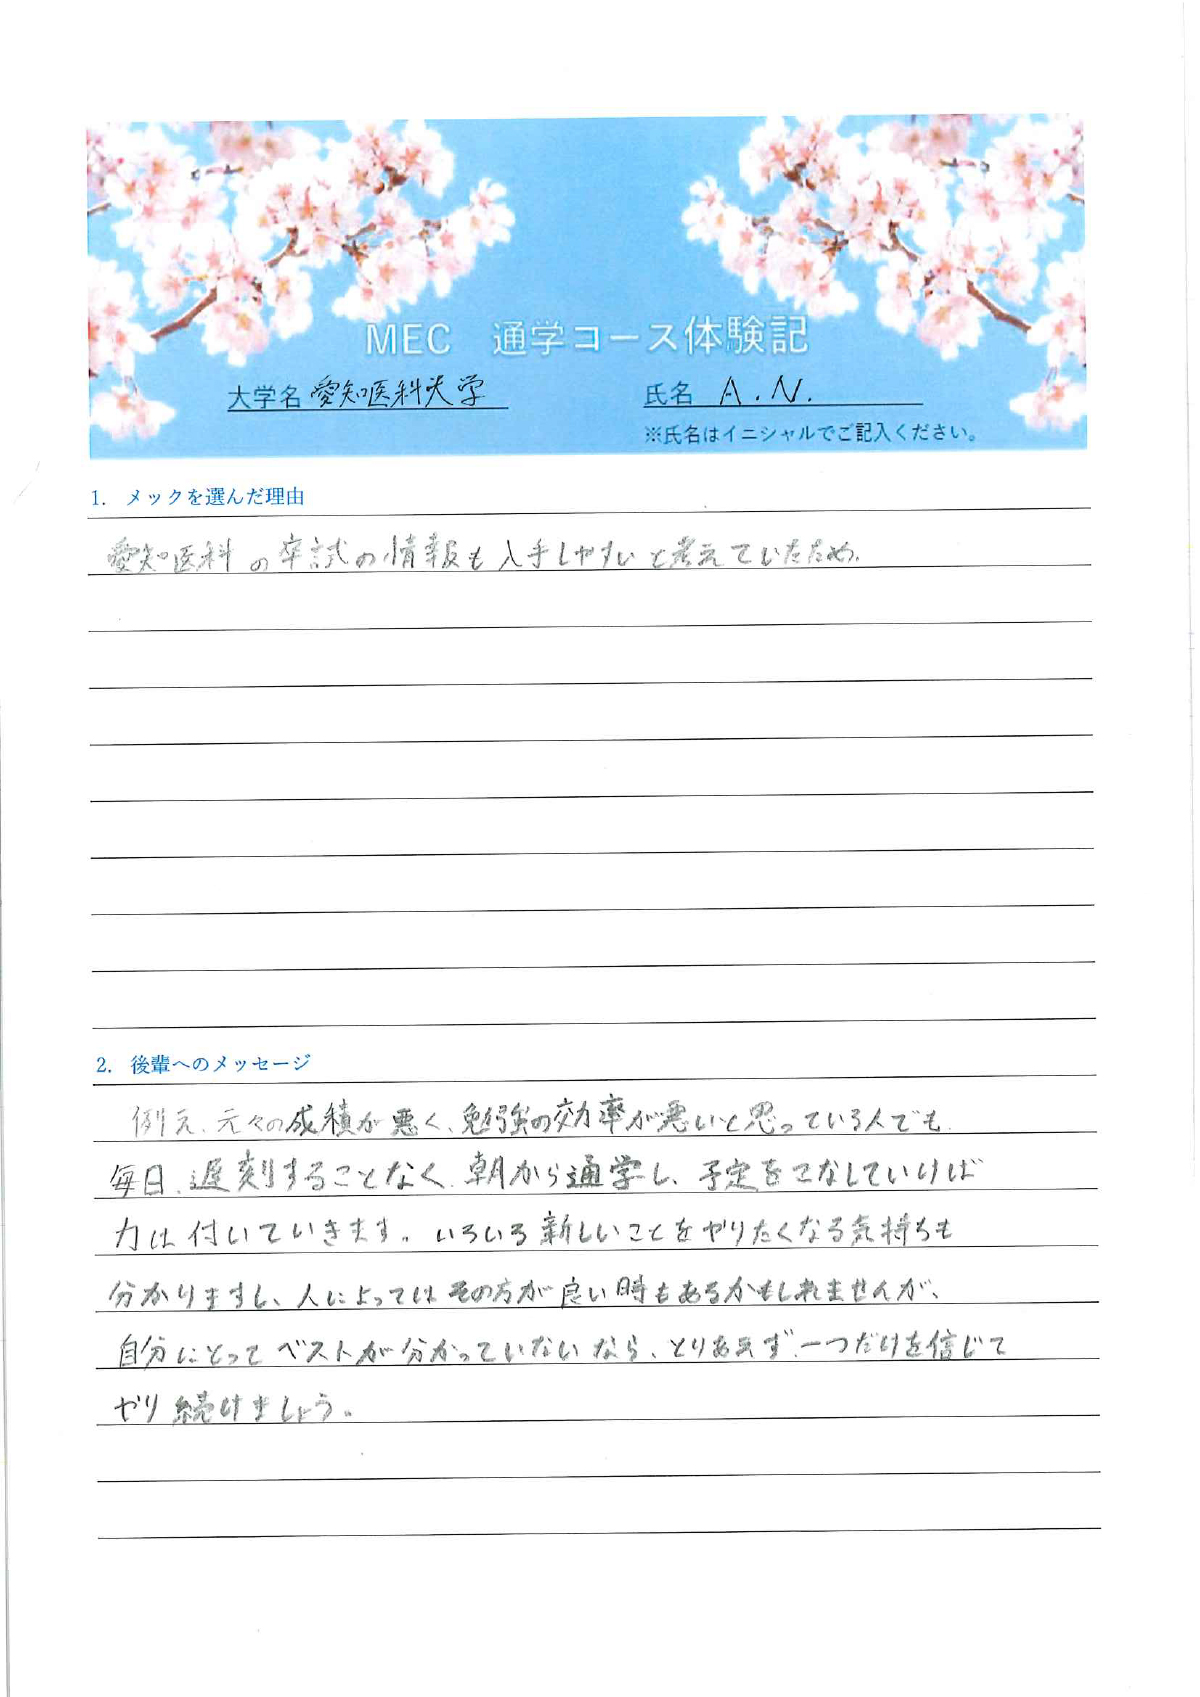 MEC 通学コース体験記
大学名 愛知医科大学 氏名 A.N.
※氏名はイニシャルでご記入ください。
1. メックを選んだ理由
愛知医科の卒試の情報も入手しやすいと考えていたため。
2. 後輩へのメッセージ
例え、元々の成績が悪く、勉強の効率が悪いと思っている人でも、
毎日、遅刻することなく、朝から通学し、予定をこなしていけば
力は付いていきます。いろいろ新しいことをやりたくなる気持ちも
分かりますし、人によってはその方が良い時もあるかもしれませんが、
自分にとってベストが分かっていないなら、とりあえず、一つだけを信じて
やり続けましょう。